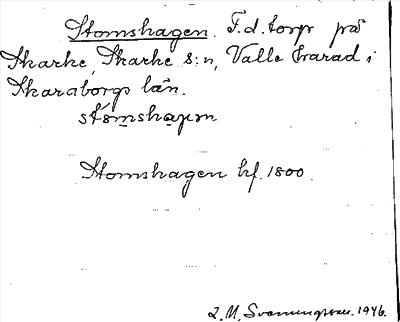 Stomshagen. F.d. torp på
Skarke, Skarke s:n, Valle härad i
Skaraborgs län.
Stomshagen hf. 1800.
Svenungsson. 1946.